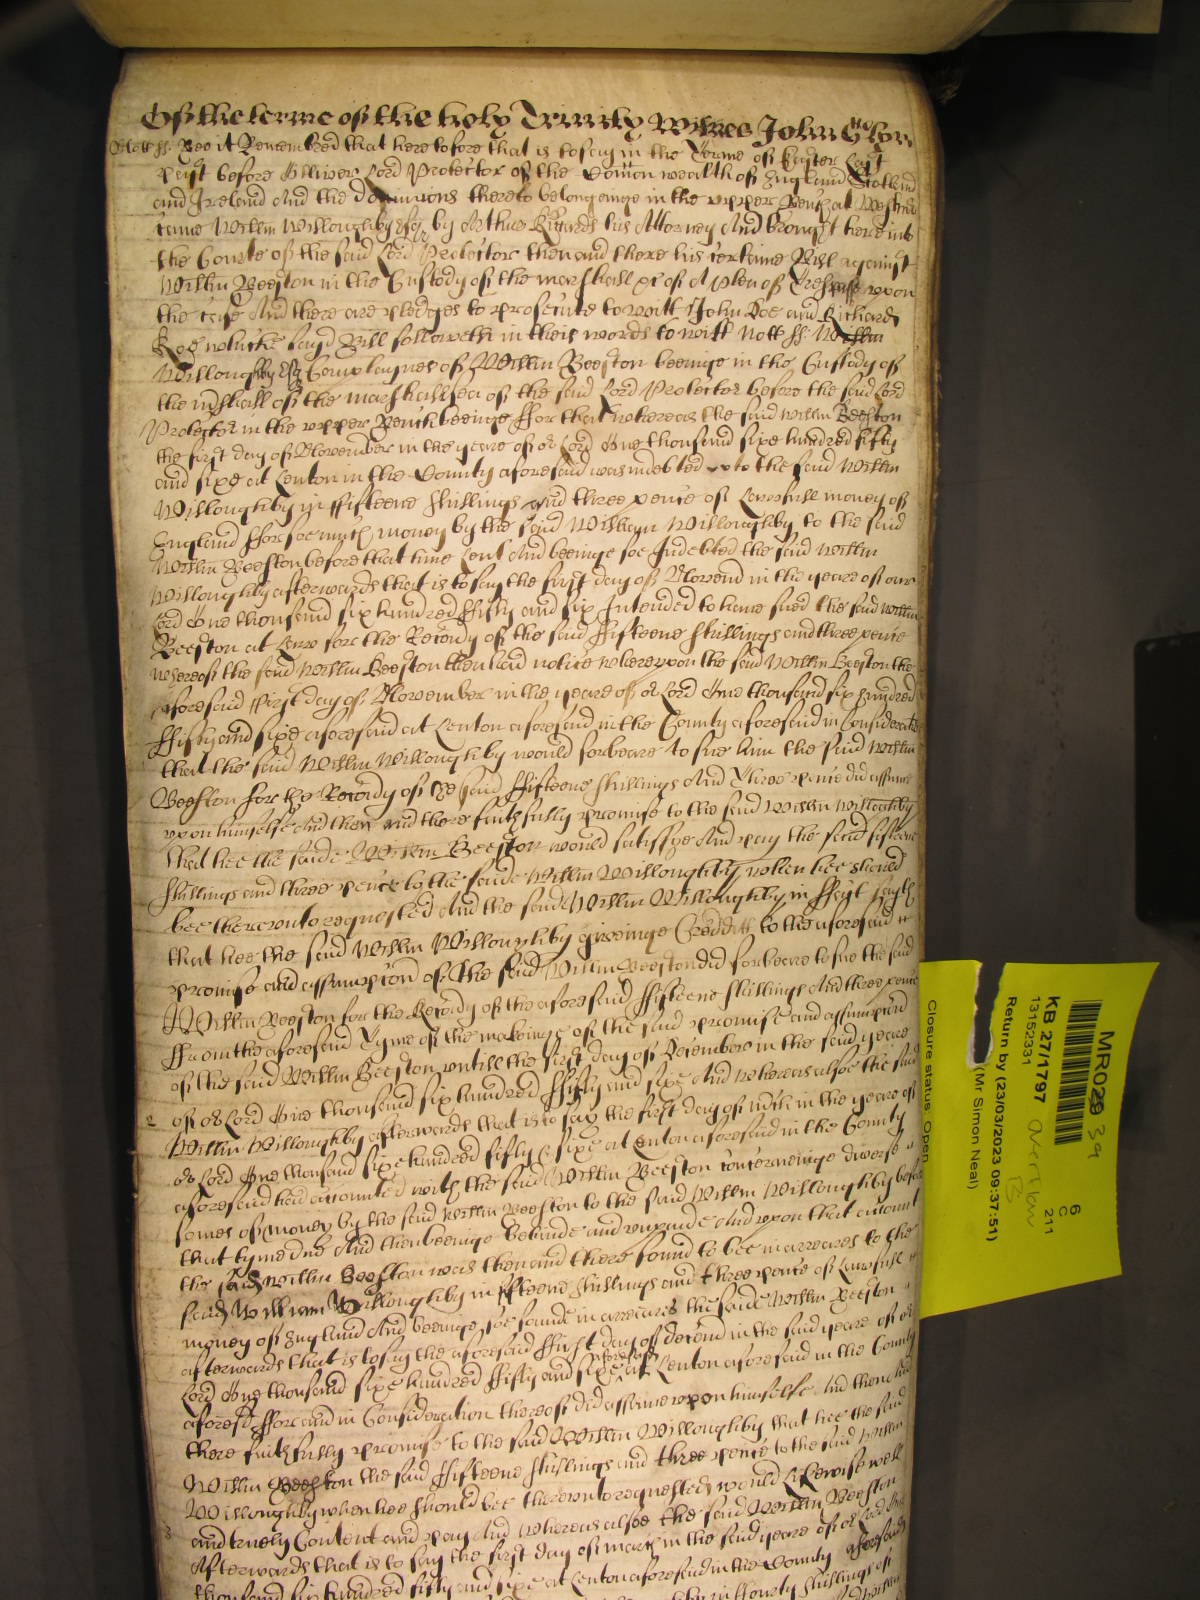 Of the terme of the holy Trinity Witnes John
Nott ss. Bee it Remembred that heretofore that is to say in the Terme of Easter Last
past before Olliver Lord Protector of the Comon wealth of England Scotland
and Ireland And the dominions thereto belonginge in the upper Bench at Westmr
came Willm Willoughby Esqr by Arthur Richards his Attorney And brought here into
the Courte of the said Lord Protector then and there his certaine Bill against
Willm Beeston in the Custody of the marshall &c of A plea of Trespasse upon
the case And there are pledges to prosecute to witt John Doe and Richard
Roe which sayd Bill followeth in theis words to witt Nott ss: Willm
Willoughby Esqr Complaynes of Willm Beeston beeinge in the Custody of
the mshall of the marshallsea of the said Lord Protector before the said Lord
Protector in the upper Bench beeinge ffor that whereas the said Willm Beeston
the first day of November in the yeare of or Lord One thousand sixe hundred fifty
and sixe at Lenton in the County aforesaid was indebted unto the said Willm
Willoughby in ffifteene shillings and three pence of Lawfull money of
England ffor soe much money by the said William Willoughby to the said
Willm Beeston before that time Lent And beeinge soe Indebted the said Willm
Willoughby afterwards that is to say the first day of Novemb in the yeare of our
Lord One thousand six hundred ffifty and six Intended to have sued the said Willm
Beeston at Law for the Recovy of the said ffifteene shillings and three pence
whereof the said Willm Beeston then had notice whereupon the said Willm Beeston the
aforesaid ffirst day of November in the yeare of or Lord One thousand six hundred
ffifty and sixe aforesaid at Lenton aforesaid in the County aforesaid in Consideracon
that the said Willm Willoughby would forbeare to sue him the said Willm
Beeston for the Recovy of the said ffifteene shillings And Three pence did assume
upon himselfe And then and there faithfully promise to the said Willm Willoughby
that hee the saide Willm Beeston would satisfye And pay the said fifteene
shillings and three pence to the saide Willm Willoughby when hee should
bee thereunto requested And the said Willm Willoughby in ffact sayth
that hee the said Willm Willoughby giveinge Creditt to the aforesaid
promise and assumpcon of the said Willm Beeston did forbeare to sue the said
Willm Beeston for the Recovy of the aforesaid ffifteene shillings And three pence
ffrom the aforesaid Tyme of the makeinge of the said promise and assumpcon
of the said Willm Beeston untill the first day of December in the said yeare
of or Lord One thousand six hundred ffifty and sixe And whereas alsoe the said
2 Willm Willoughby afterwards that is to say the first day of in the yeare of
or Lord One thousand sixe hundred fifty & sixe at Lenton aforesaid in the County
aforesaid had accounted with the said Willm Beeston concerneinge diverse
somes of money by the said Willm Beeston to the said Willm Willoughby before
that tyme due And then beeinge behinde and unpaide And upon that account
the said Willm Beeston was then and there found to bee in arreares to the
said William Willoughby in fifteene shillings and three pence of Lawfull
money of England And beeinge soe found in arreares the saide Willm Beeston
afterwards that is to say the aforesaid ffirst day of decemb in the said yeare of or
Lord One thousand sixe hundred ffifty and sixe aforesaid at Lenton aforesaid in the County
aforesd ffor and in Consideration thereof did assume upon himselfe And then and
there faithfully promise to the said Willm Willoughby that hee the said
Willm Beeston the said ffifteene shillings and three pence to the said Willm
Willoughby when hee should bee thereunto requested would Likewise well
and truely Content and pay And whereas alsoe the said Willm Beeston
3 Afterwards that is to say the first day of march in the said yeare of or Lord One
thousand six hundred fifty and sixe at Lenton aforesaid in the County aforesaid
in ffourty shillings of
MR029
KB 27/1797
13152331
Return by (23/03/2023 09:37:51)
(Mr Simon Neal)
Closure status Open
6
C
211